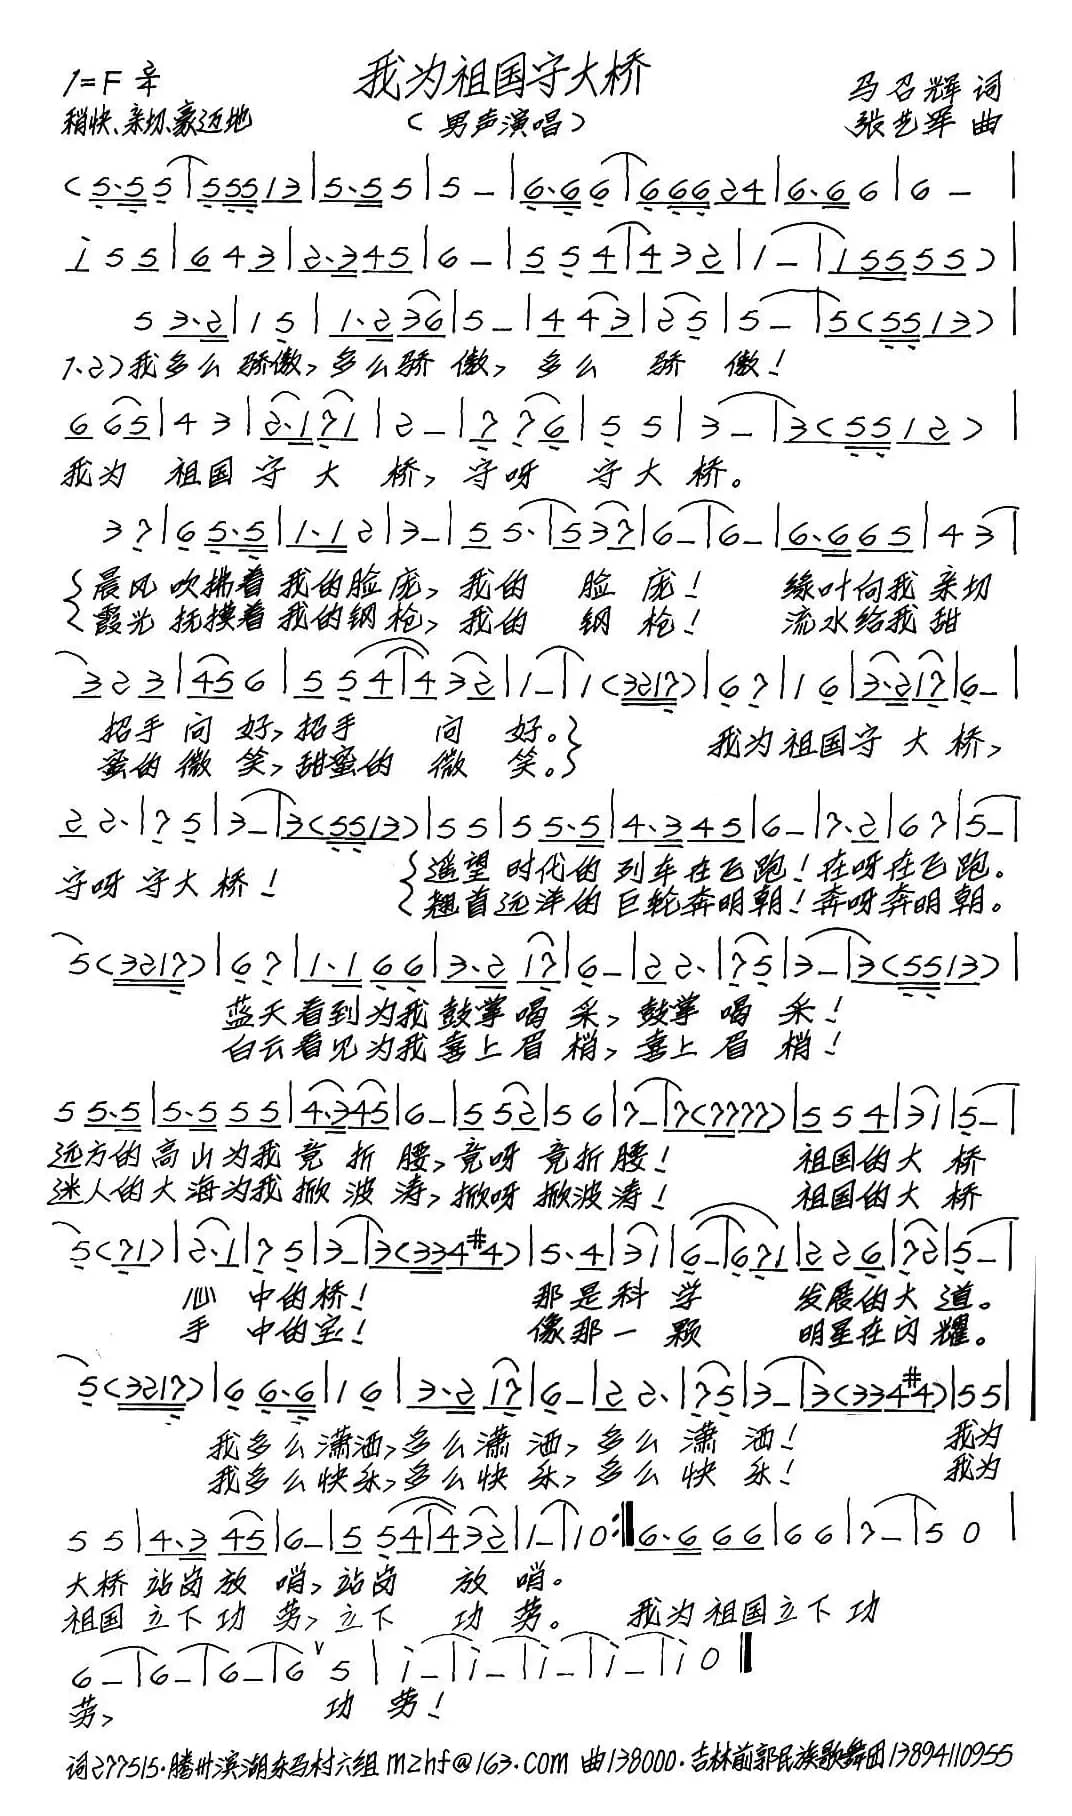 我为祖国守大桥
1=F 2/4
马召辉 词
稍快、亲切、豪迈地
（男声演唱）
张艺军 曲
(5·55|55513|5·55|5–|6·66|66624|6·66|6–|
i55|643|2·345|6–|554|432|1–|15555)|
53·2|15|1·236|5–|443|25|5–|5(5513)|
1、2)我多么骄傲,多么骄傲,多么骄傲!
665|43|2·171|2–|776|55|3–|3(5512)|
我为祖国守大桥,守呀守大桥。
37|65·5|1·12|3–|55·|537|6–|6–|6·665|43|
晨风吹拂着我的脸庞,我的脸庞! 绿叶向我亲切
霞光抚摸着我的钢枪,我的钢枪! 流水给我甜
323|456|554|432|1–|1(3217)|67|16|3·217|6–|
招手问好,招手问好。 我为祖国守大桥,
蜜的微笑,甜蜜的微笑。
22·|75|3–|3(5513)|55|55·5|4·345|6–|7·2|67|5–|
守呀守大桥! 遥望时代的列车在飞跑!在呀在飞跑。
翘首远洋的巨轮奔明朝!奔呀奔明朝。
5(3217)|67|1·166|3·217|6–|22·|75|3–|3(5513)|
蓝天看到为我鼓掌喝采,鼓掌喝采!
白云看见为我喜上眉梢,喜上眉梢!
55·5|5·555|4·345|6–|552|56|7–|7(7777)|554|31|5–|
远方的高山为我竟折腰,竟呀竟折腰! 祖国的大桥
迷人的大海为我掀波涛,掀呀掀波涛! 祖国的大桥
5(71)|2·1|75|3–|3(334#4)|5·4|31|6–|671|226|72|5–|
心中的桥! 那是科学发展的大道。
手中的宝! 像那一颗明星在闪耀。
5(3217)|66·6|16|3·217|6–|22·|75|3–|3(334#4)|55|
我多么潇洒,多么潇洒,多么潇洒! 我为
我多么快乐,多么快乐,多么快乐! 我为
55|4·345|6–|554|432|1–|10:‖6·666|66|7–|50|
大桥站岗放哨,站岗放哨。
祖国立下功劳,立下功劳。 我为祖国立下功
6–|6–|6–|6∨5|i–|i–|i–|i–|i0‖
劳, 功劳!
词277515·滕州滨湖东马村六组mzhf@163.com 曲138000·吉林前郭民族歌舞团13894110955